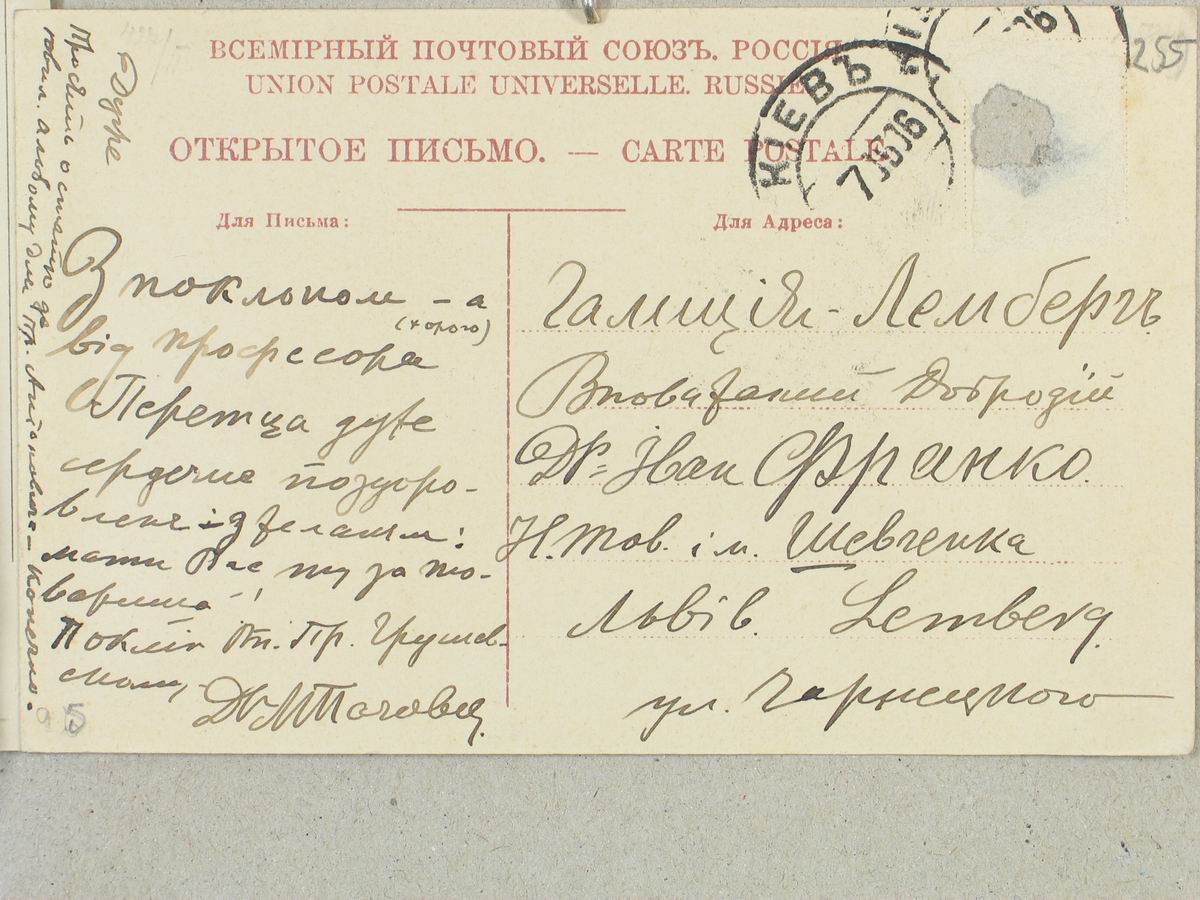 ВСЕМІРНЫЙ ПОЧТОВЫЙ СОЮЗЪ. РОССІЯ
UNION POSTALE UNIVERSELLE. RUSSIE
ОТКРЫТОЕ ПИСЬМО. — CARTE POSTALE
КІЕВЪ
255
Для Письма:
Для Адреса:
З поклоном - а
(хорого)
від професора
Перетца дуже
сердечне поздоро-
вленє і з желанєм:
мати Вас ту за то-
вариша!
Поклін Вп. Пр. Грушев-
ському,
Галиція - Лембергъ
Вповажаний Добродій
Др Іван Франко.
Н. Тов. ім. Шевченка
Львів. Lemberg.
ул. Чарнецкого
Дуже
Просять о